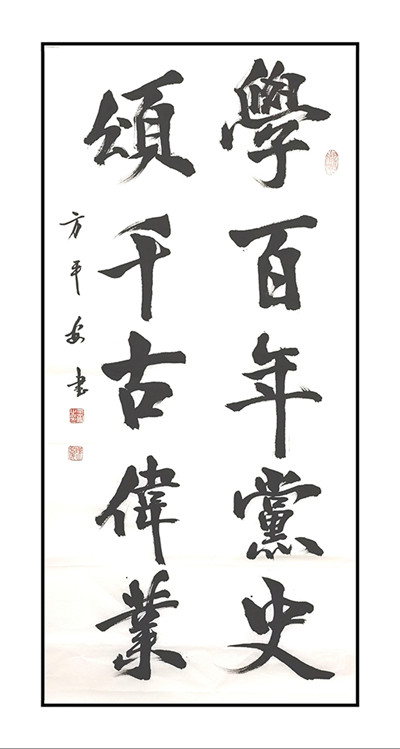 學百年黨史
頌千古偉業
方平安書